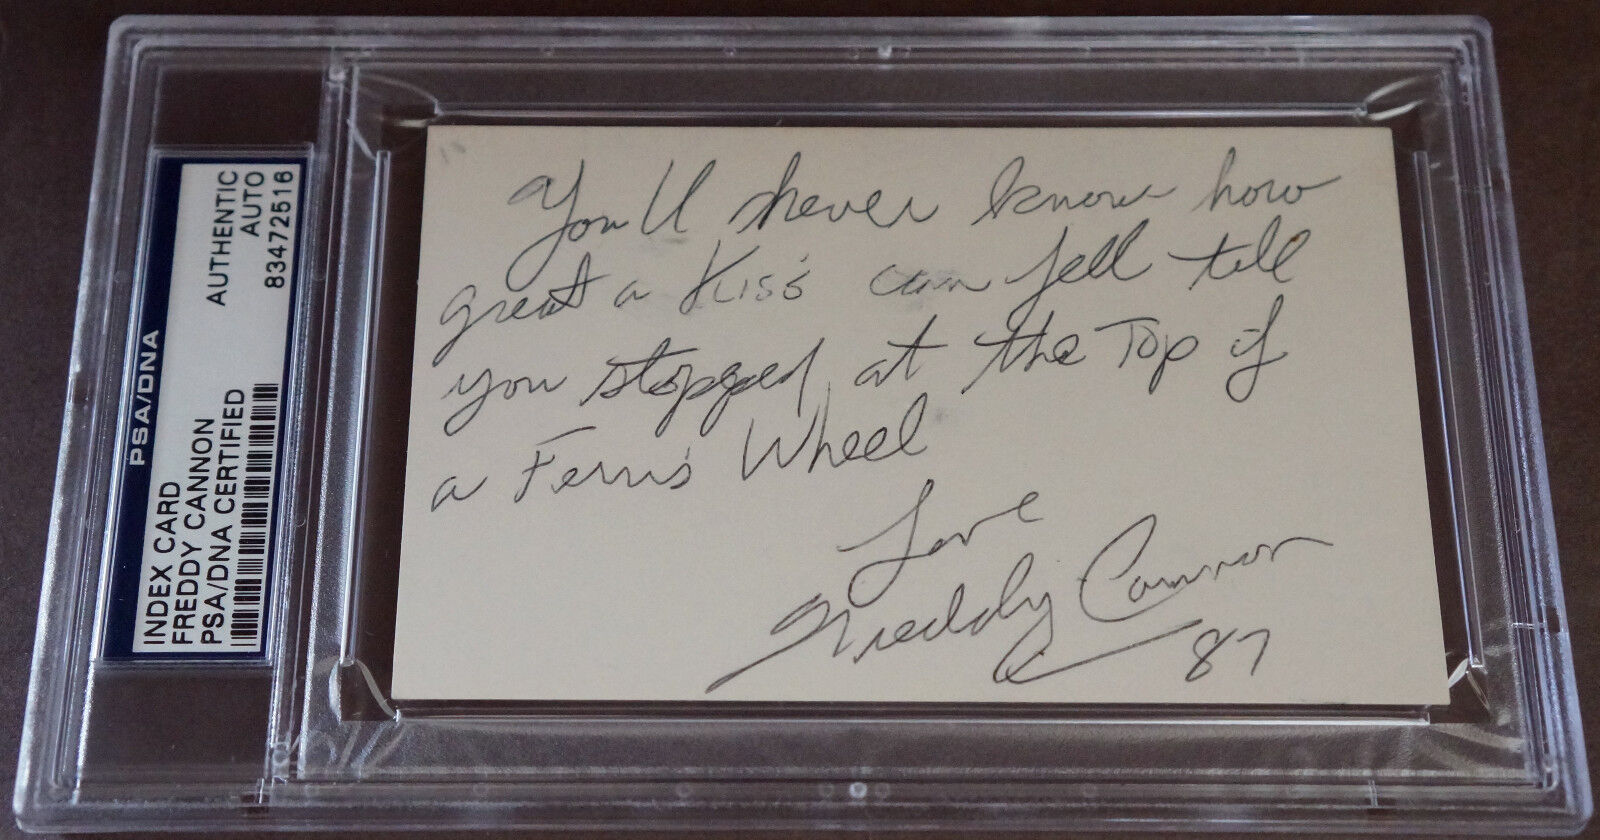 PSA/DNA
INDEX CARD
FREDDY CANNON
PSA/DNA CERTIFIED
AUTHENTIC
AUTO
83472516
You'll never know how
great a Kiss can feel till
you stopped at the Top if
a Ferris Wheel
Love
Freddy Cannon
87